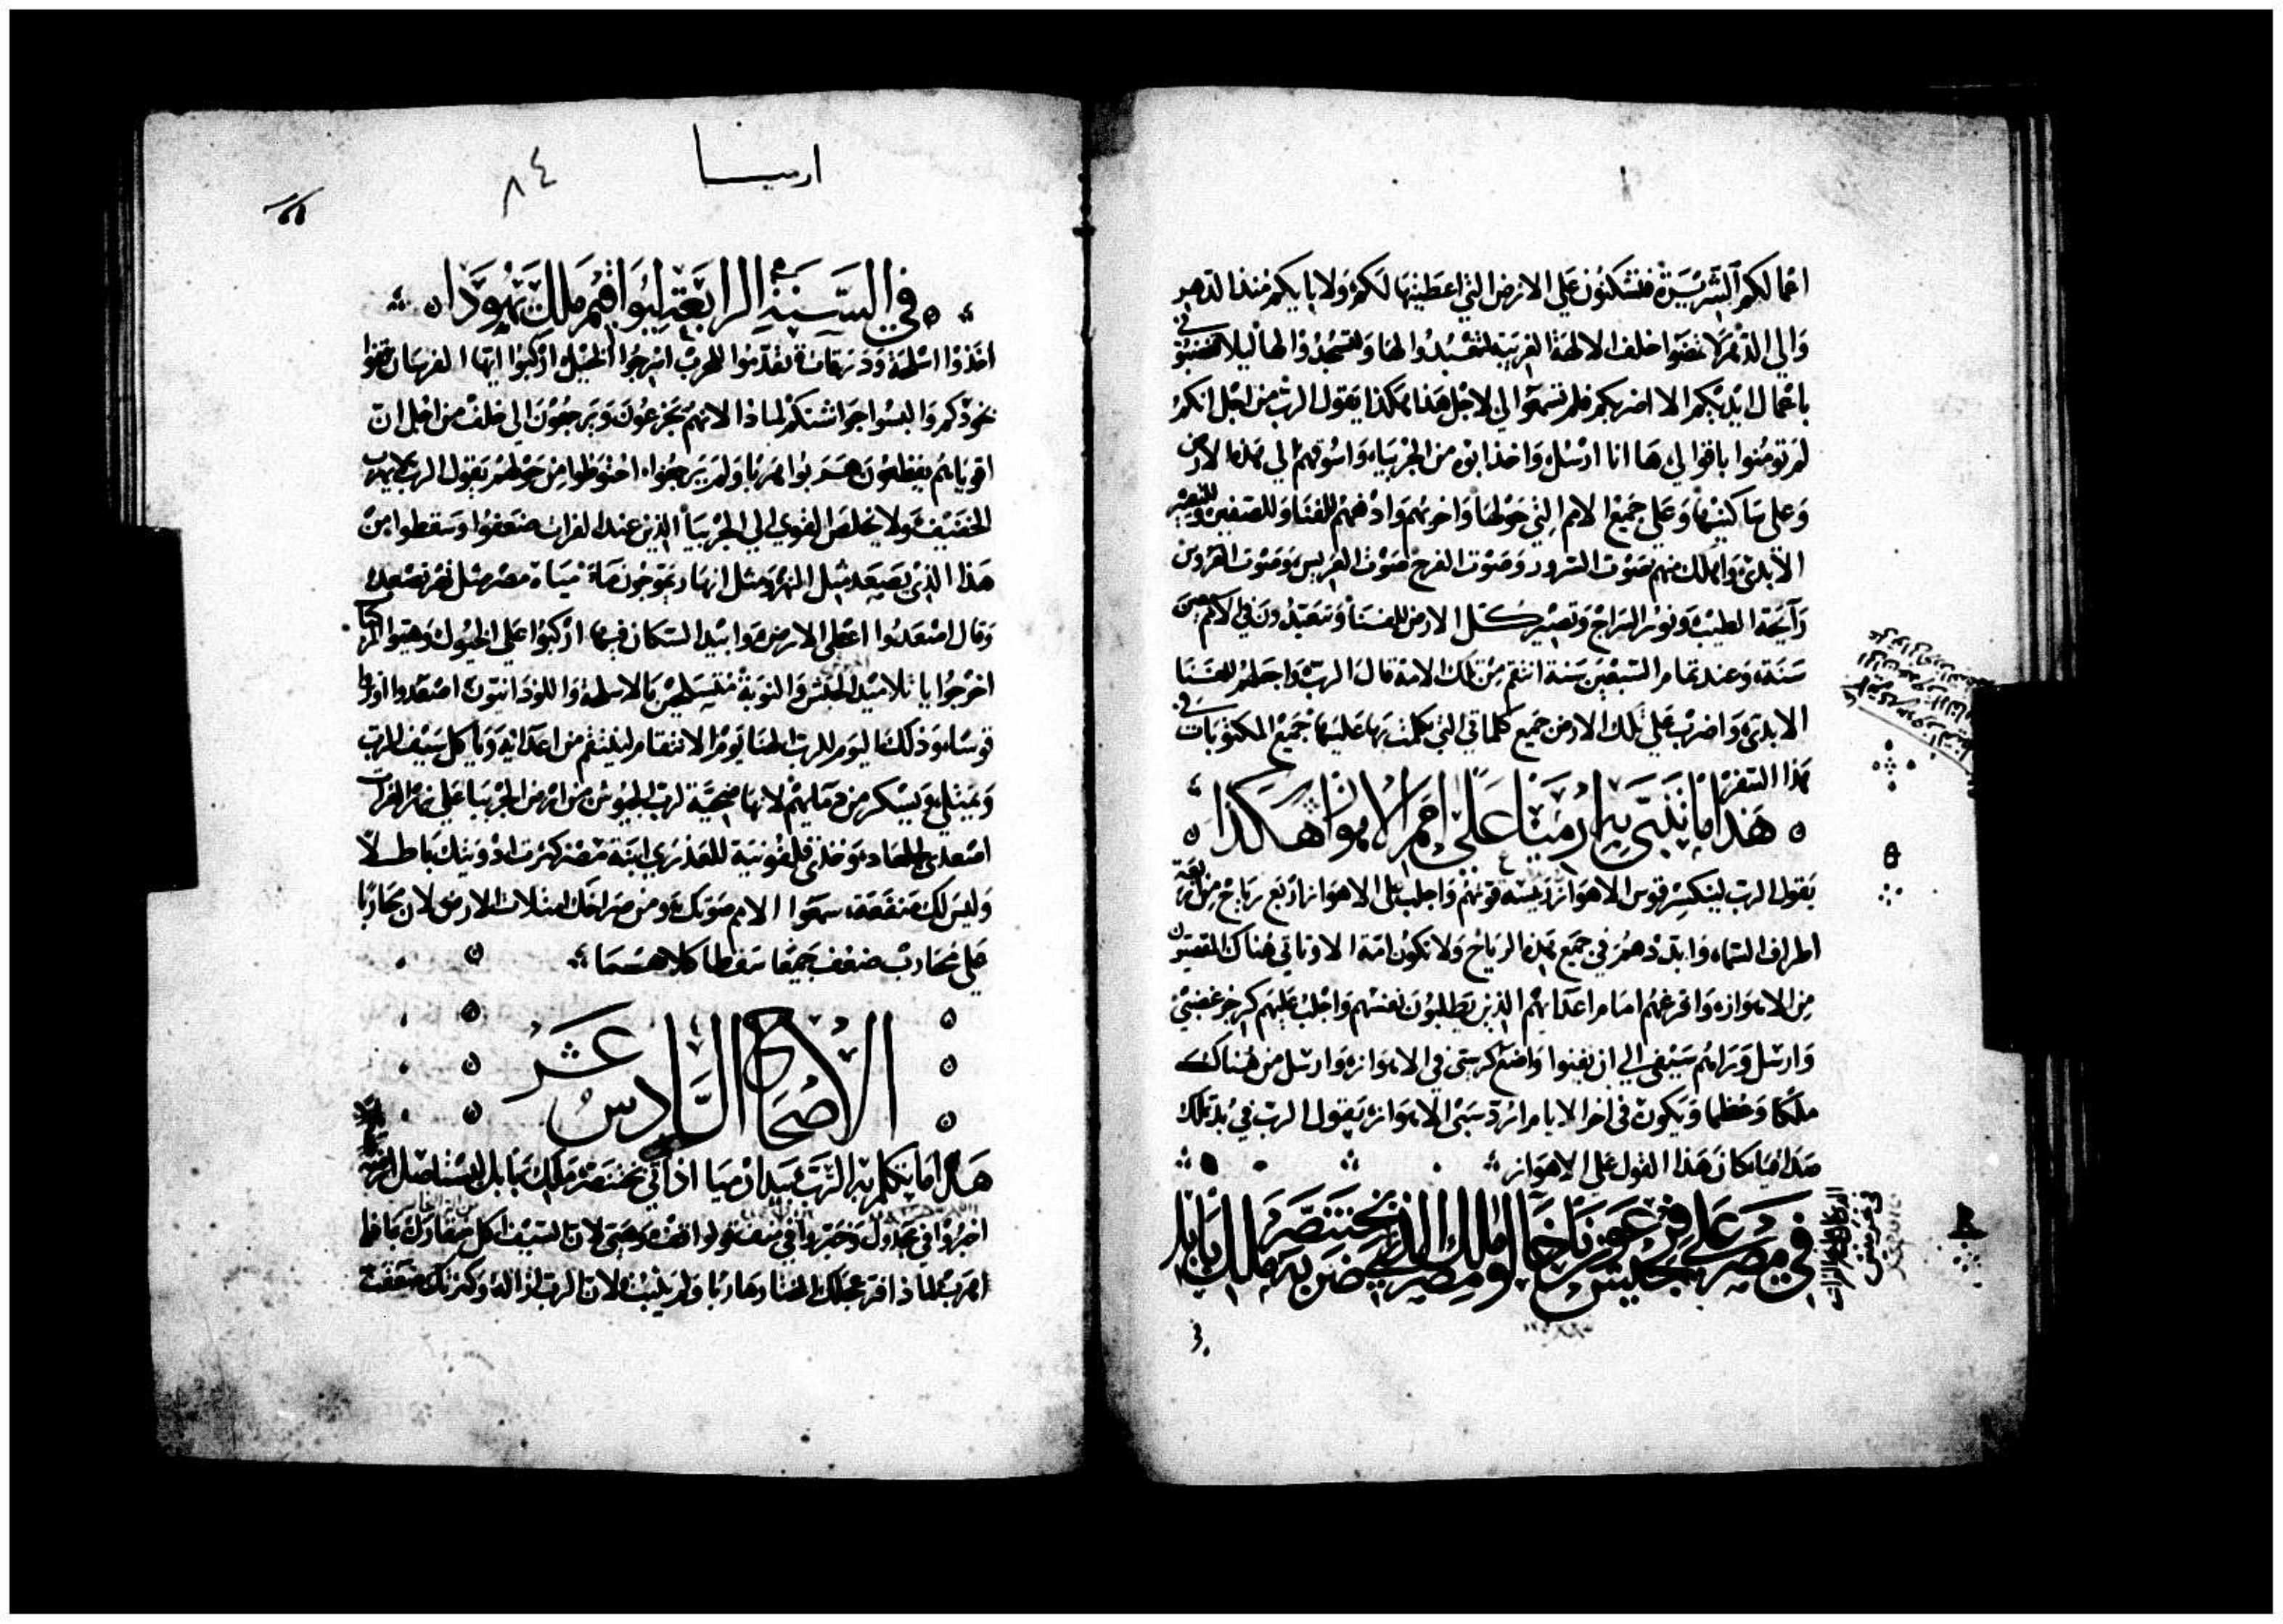 اعمالكم الشريرة فتسكنون علي الارض التي اعطيتها لكم ولابايكم منذ الدهر
والي الدهر لا تمضوا خلف الالهة الغريبة لتتعبدوا لها وتسجدوا لها ليلا تغضبوني
باعمال ايديكم الا اضربكم فلم تسمعوا لي لاجل هذا هكذا يقول الرب من اجل انكم
لم تومنوا باقوالي ها انا ارسل واخذ ابوة من الجربياء واسوقهم الي هذه الارض
وعلي ساكنيها وعلي جميع الامم التي حولها واخربهم وادفعهم للفنا وللصفير وللتعيير
الابدي واهلك منهم صوت السرور وصوت الفرح صوت العريس وصوت العروس
رآيحة الطيب ونور السراج وتصير كل الارض للفنا وتتعبدون في الامم سبعين
سنة وعند تمام السبعين سنة انتقم من تلك الامة قال الرب واجعلهم للفنا
الابدي واضرب علي تلك الارض جميع كلماتي التي تكلمت بها عليها جميع المكتوبات في
هذا السفر
هذا ما تنبي به ارميا علي امم الاهواز هكذا
يقول الرب لينكسر قوس الاهواز ريسة قوتهم واجلب علي الاهواز اربع رياح من اربعة
اطراف السماء وابددهم في جميع هذه الرياح ولا تكون امة الا وتاتي هناك المقصيون
من الاهواز وافزعهم امام اعدايهم الذين يطلبون نفسهم واجلب عليهم كرجز غضبي
وارسل وراهم سيفي الي ان يفنوا واضع كرسي في الاهواز وارسل من هناك
ملكا وعظما ويكون في اخر الايام ارد سبي الاهواز يقول الرب في بد تملك
صداقيا كان هذا القول علي الاهواز
في مصر علي جيش فرعون ناخاو ملك مصر الذي ضربه بختنصر ملك بابل
ارميا
٨٤
في السنة الرابعة ليواقيم ملك يهودا
اخذوا اسلحة تقدموا للحرب اسرجوا الخيل اركبوا ايها الفرسان قفوا
بخودكم والبسوا جواشنكم لماذا لانهم يجزعون ويرجعون الي خلف من اجل ان
اقوياهم يقطعون هربوا هربا ولم يرجعوا احتوطوا من حولهم يقول الرب لا يهرب
الخفيف ولا يخلص القوي الي الجربيا الذين عند الفرات ضعفوا وسقطوا من
هذا الذي يصعد مثل النهر ومثل انهار يتموجون ماء مياة مصر مثل نهر تصعد
وقال اصعدوا اغطي الارض وابيد السكان فيها اركبوا علي الخيول وهيوا المراكب
اخرجوا يا تلاميذ الحبش والنوبة متسلحين بالاسلحة واللوذانيون اصعدوا اوتروا
قوسا وذلك اليوم للرب الهنا يوم الانتقام لينتقم من اعدايه وياكل سيف الرب
ويمتلي ويسكر من دمايهم لانها ضحية لرب الجيوش من ارض الجربيا علي نهر الفرات
اصعدي جلعاد وخذي قلفونية للعذري ابنة مصر كثرت ادويتك باطلا
وليس لك منفعة سمعوا الامم صوتك ومن صراخك امتلات الارض لان محاربا
علي محارب ضعف جميعا سقطا كلاهما
الاصحاح السادس عشر
هذا ما تكلم به الرب بيد ارميا اذ اتي بختنصر ملك بابل ليستاصل ارض
اخبروا في مجدول وخبروا في منف قولوا قف وهيي لان السيف اكل لماذا
اهرب لماذا فر عجلك الهنا رهاربا ولم يثبت لان الرب اذاله وكثرتك ضعفت